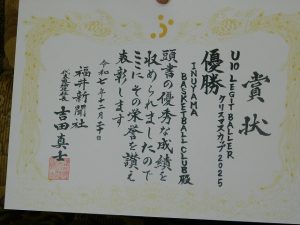 賞状
U10 LEGIT BALLER
クリスマスカップ2025
優勝
INUYAMA
BASKETBALL CLUB 殿
頭書の優秀な成績を
収められましたので
ここにその栄誉を讃え
表彰します
令和七年十二月二十日
福井新聞社
代表取締役社長 吉田真士